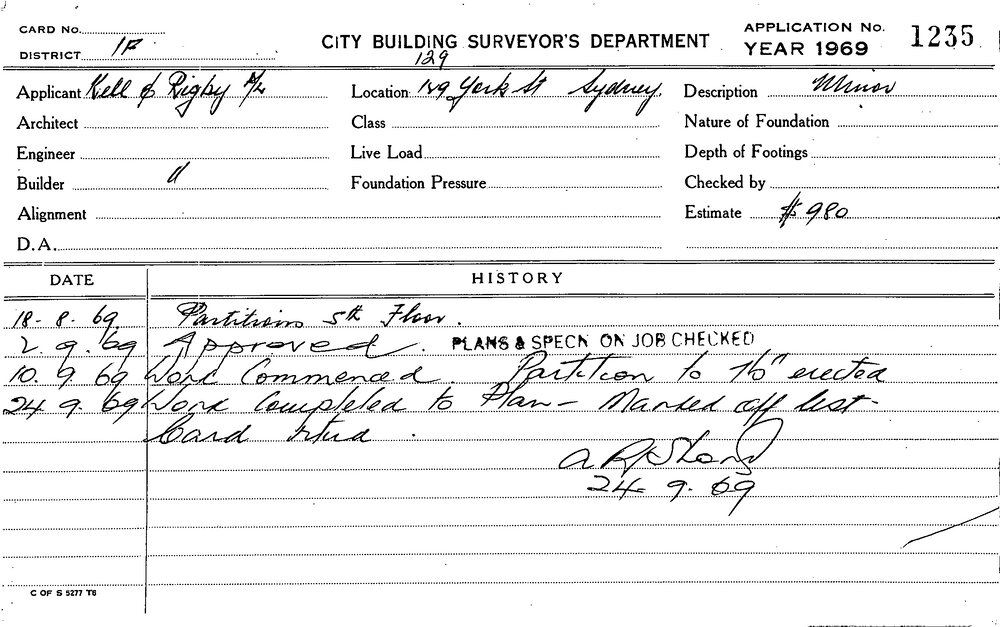 CARD No.
DISTRICT 1F
CITY BUILDING SURVEYOR'S DEPARTMENT
APPLICATION No. 1235
YEAR 1969
129
Applicant Kell & Rigby P/L Location 129 York St Sydney. Description Minor
Architect Class Nature of Foundation
Engineer Live Load Depth of Footings
Builder " Foundation Pressure Checked by
Alignment Estimate $980
D.A.
DATE HISTORY
18. 8. 69. Partitions 5th Floor.
2. 9. 69 Approved. PLANS & SPECN ON JOB CHECKED
10. 9. 69 Work Commenced Partition to 7'6" erected
24. 9. 69 Work Completed to Plan - Marked off list -
Card rtud.
24. 9. 69
C OF S 5277 T6